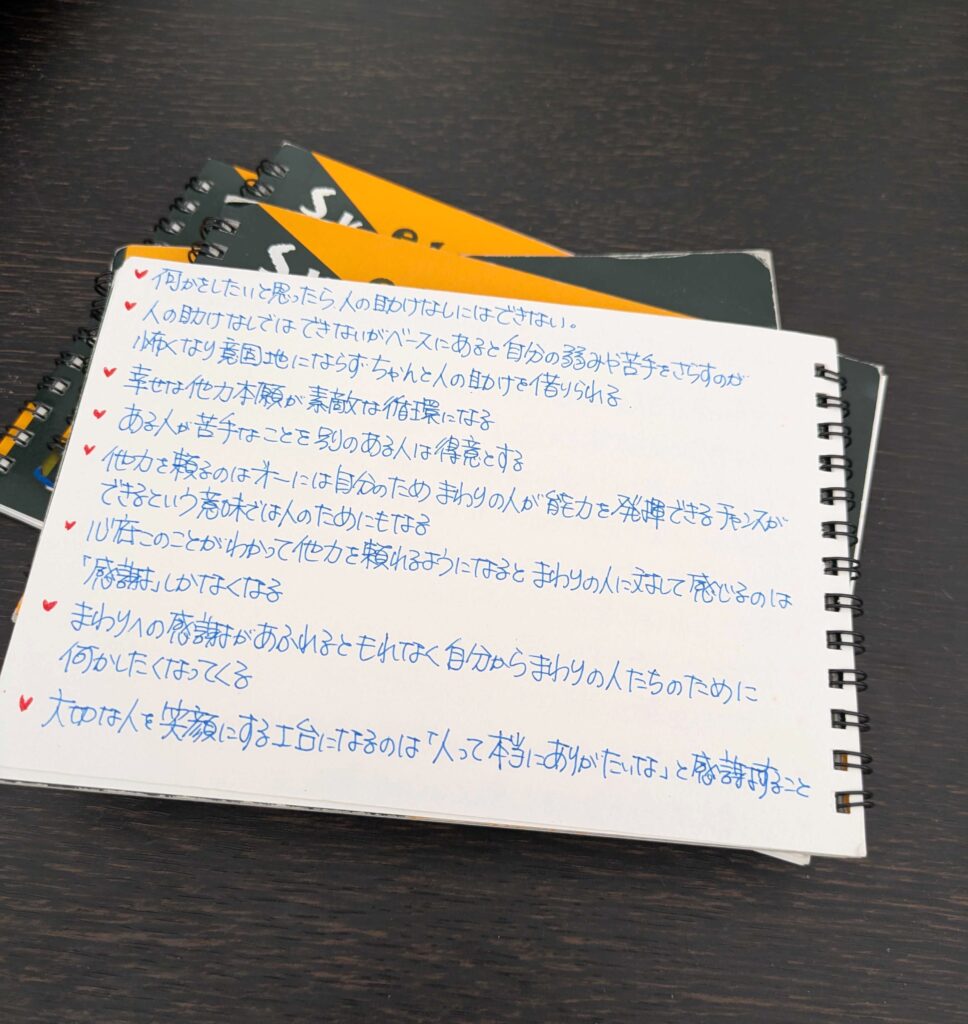 ♥ 何かをしたいと思ったら、人の助けなしにはできない。
♥ 人の助けなしではできないがベースにあると自分の弱みや苦手をさらすのが
怖くなり意固地にならずちゃんと人の助けを借りられる
♥ 幸せな他力本願が素敵な循環になる
♥ ある人が苦手なことを別のある人は得意とする
♥ 他力を頼るのはオ一には自分のためまわりの人が能力を発揮できるチャンスが
できるという意味では人のためにもなる
♥ 心底このことがわかって他力を頼れるようになるとまわりの人に対して感じるのは
「感謝」しかなくなる
♥ まわりへの感謝があふれるともれなく自分からまわりの人たちのために
何かしたくなってくる
♥ 大切な人を笑顔にする土台になるのは「人って本当にありがたいな」と感謝すること